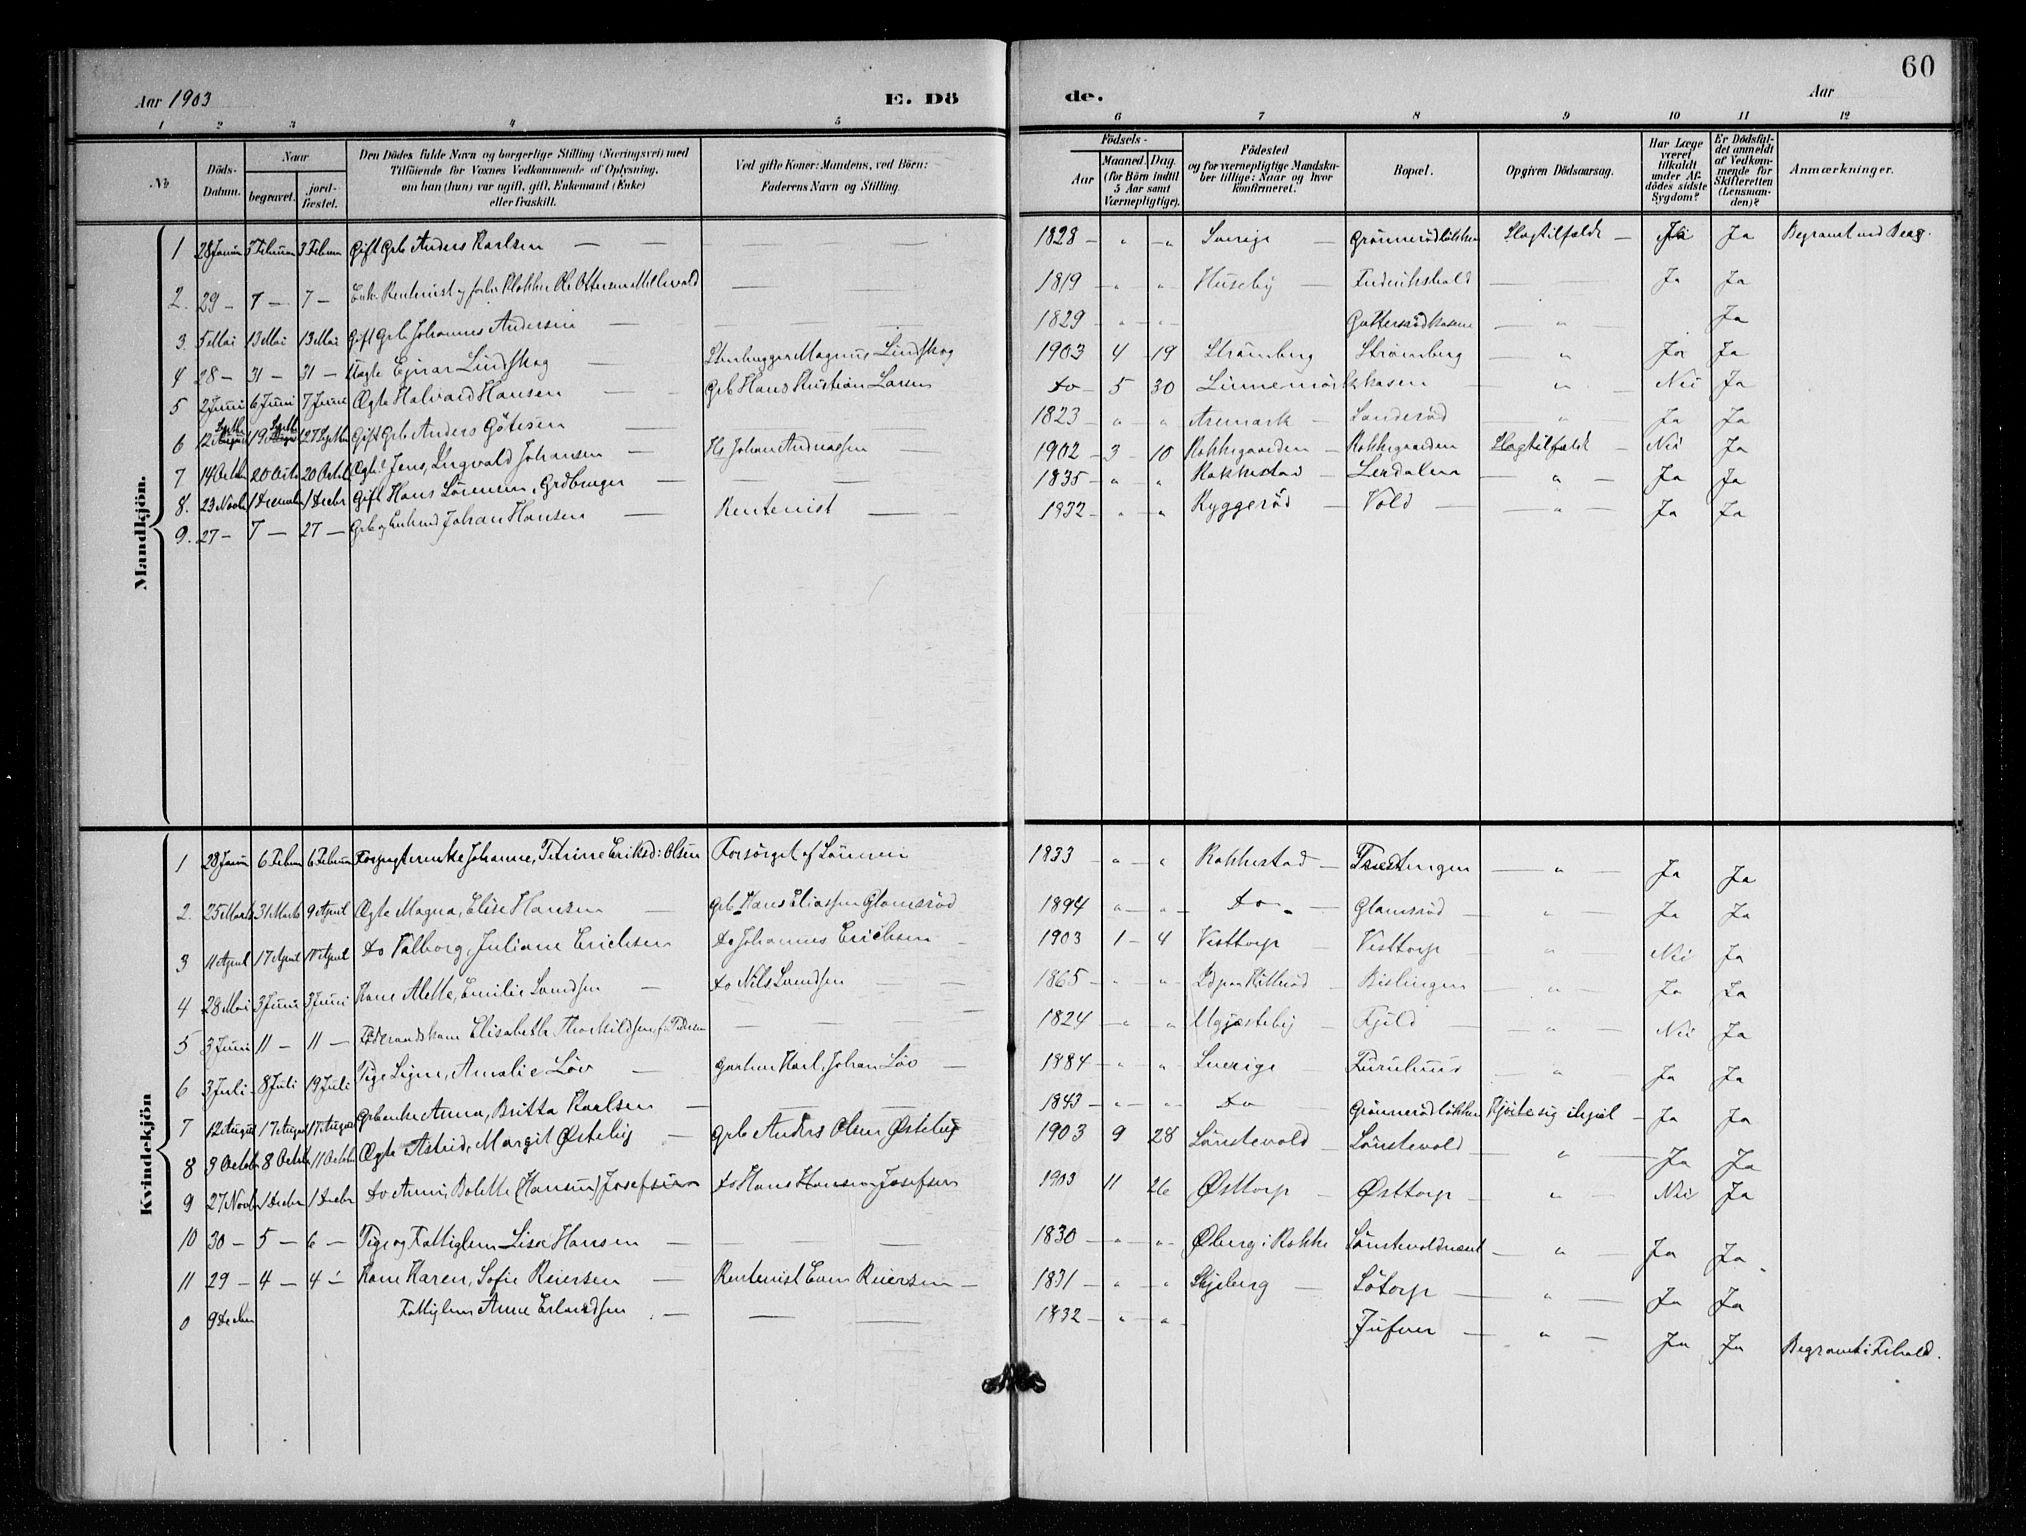 60
Aar 1903
E. Dö
de.
Aar
1 2 3 4 5 6 7 8 9 10 11 12
No
Döds-Datum.
Naar
begravet.
jord-fæstet.
Den Dödes fulde Navn og borgerlige Stilling (Næringsvei) med Tilföiende for Voxnes Vedkommende af Oplysning, om han (hun) var ugift, gift, Enkemand (Enke) eller fraskilt.
Ved gifte Koner: Mandens, ved Börn: Faderens Navn og Stilling.
Födsels-
Aar
Maaned. Dag.
(for Börn indtil 5 Aar samt Værnepligtige).
Födested og for værnepligtige Mandskaber tillige: Naar og hvor konfirmeret.
Bopæl.
Opgiven Dödsaarsag.
Har Læge været tilkaldt under Afdödes sidste Sygdom?
Er Dödsfaldet anmeldt af Vedkommende for Skifteretten (Lensmanden)?
Anmærkninger.
Mandkjön.
1 28 Januar 3 Februar 3 Februar Gift Grb Anders Karlsen — — 1828 — " — " Sverige — Grönnerödlökken Slagtilfælde — Ja Ja Begravet ved Berg.
2. 29 — 7 — 7 — Enkem. Rentenist og forhv. Klokker Ole Ottersen — — 1819 " " Huseby — Fredrikshald — — Ja Ja
3. 5 Mai 13 Mai 13 Mai Gift Grb Johannes Andersen — — 1829 — " — " — " — Ja
4 28 — 31 — 31 — Uægte Ejnar Lindskog — Stenhugger Magnus Lindskog 1903 4 — 19 Strömberg Strömberg — " Ja Ja
5 2 Juni 6 Juni 7 Juni Ægte Halvard Hansen — Grb Hans Kristian Larsen do — 5 30 — " — Nei Ja
6 12 Septb 19 Septb 27 Septbr Gift Grb Anders Götesen — — 1823 — " " Aremark — Sanderöd — " — Ja Ja
7 14 Octbr 20 Octbr 20 Octbr Ægte Jens, Ingvald Johansen — Johan Andreassen — 1902 — 3 — 10 Rokkegaarden — Rokkegaarden Slagtilfælde — Nei Ja
8. 23 Novbr 1 Decembr 1 Decbr Gift Hans Sörensen, Grdbruger — 1835 — " " Rakkestad — Lerdalen — " — Ja Ja
9. 27 — 7 — 27 — Grb og Enkemd Johan Hansen — Rentenist — 1832 — " " Ryggeröd — Vold — — " — Ja Ja
Kvindekjön
1 28 Januar 6 Februar 6 Februar Forpagterenke Johanne, Petrine Eriksd: Olsen Forsörget af Sönnen 1833 — " " Rakkestad — — " — Ja Ja
2. 25 Marts 31 Marts 9 April Ægte Magna, Elise Hansen — Grb Hans Eliassen Glamsröd 1894 " — " — do — Glamsröd — " — Ja Ja
3 11 April 17 April 17 April do Valborg, Juliane Erichsen do Johannes Erichsen — 1903 1 — 4 Visttorp — Visttorp " — Nei Ja
4 28 Mai 3 Juni 3 Juni Kone Alette, Emilie Svendsen — do Nils Svendsen — 1865 " " — Bislingen — " — Ja Ja
5 3 Juni 11 — 11 — Föderaadskone Elisabeth Thorkildsen, f: Pedersen — 1824 — " " — Fjeld — " — Nei Ja
6 3 Juli — 8 Juli 19 Juli Pige Signe, Amalie Löv — Gartner Karl, Johan Löv — 1884 — " " Sverige — Furulund — " — Ja Ja
7 12 August 17 August 17 August Grb enke Anna, Britta Karlsen — — 1843 — " — " do — Grönnerödlökken — Ja Ja
8 3 Octob 8 Octob 11 Octob Ægte Astrid, Margit Østeby — Grb Anders Olsen Østeby 1903 9 28 Lönstevold Lönstevold — " — Ja Ja
9 27 Novbr 1 Decbr 1 Decbr do Anni, Bolette (Hansen) Josefsen do Hans Hansen Josefsen 1903 11 26 Østtorp — Østtorp — " — Nei Ja
10 30 — 5 — 6 — Pige og Fattiglem Lise Hansen — — 1830 — " — " Øberg i Rokke — " — Ja Ja
11 29 — 4 — 4 — Kone Karen, Sofie Reiersen — Rentenist Even Reiersen — 1831 — " — " Skjeberg — Sötorp — " — Ja Ja
0 9 Decbr Fattiglem Anne Erlandsen — — 1832 — " — " — " — Ja Ja Begravet i Frhald.